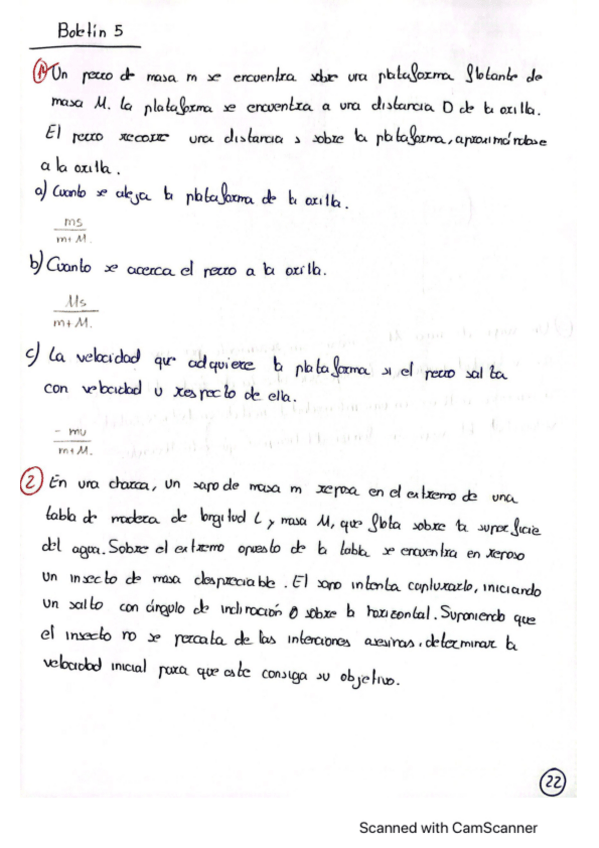 Boletín 5
1 Un perro de masa m se encuentra sobre una plataforma flotante de
masa M. La plataforma se encuentra a una distancia D de la orilla.
El perro recorre una distancia s sobre la plataforma, aproximándose
a la orilla.
a) Cuanto se aleja la plataforma de la orilla.
ms
m+M.
b) Cuanto se acerca el perro a la orilla.
Ms
m+M.
c) La velocidad que adquiere la plataforma si el perro salta
con velocidad u respecto de ella.
- mu
m+M.
2 En una charca, un sapo de masa m reposa en el extremo de una
tabla de madera de longitud L y masa M, que flota sobre la superficie
del agua. Sobre el extremo opuesto de la tabla se encuentra en reposo
un insecto de masa despreciable. El sapo intenta capturarlo, iniciando
un salto con ángulo de inclinación θ sobre la horizontal. Suponiendo que
el insecto no se percata de las intenciones asesinas, determinar la
velocidad inicial para que este consiga su objetivo.
22
Scanned with CamScanner